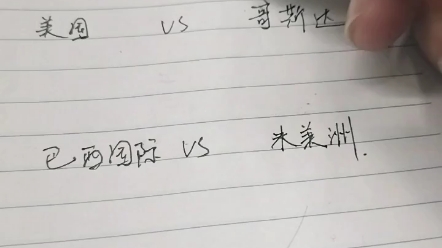 美国 VS 哥斯达
巴西国际 VS 米莱洲.